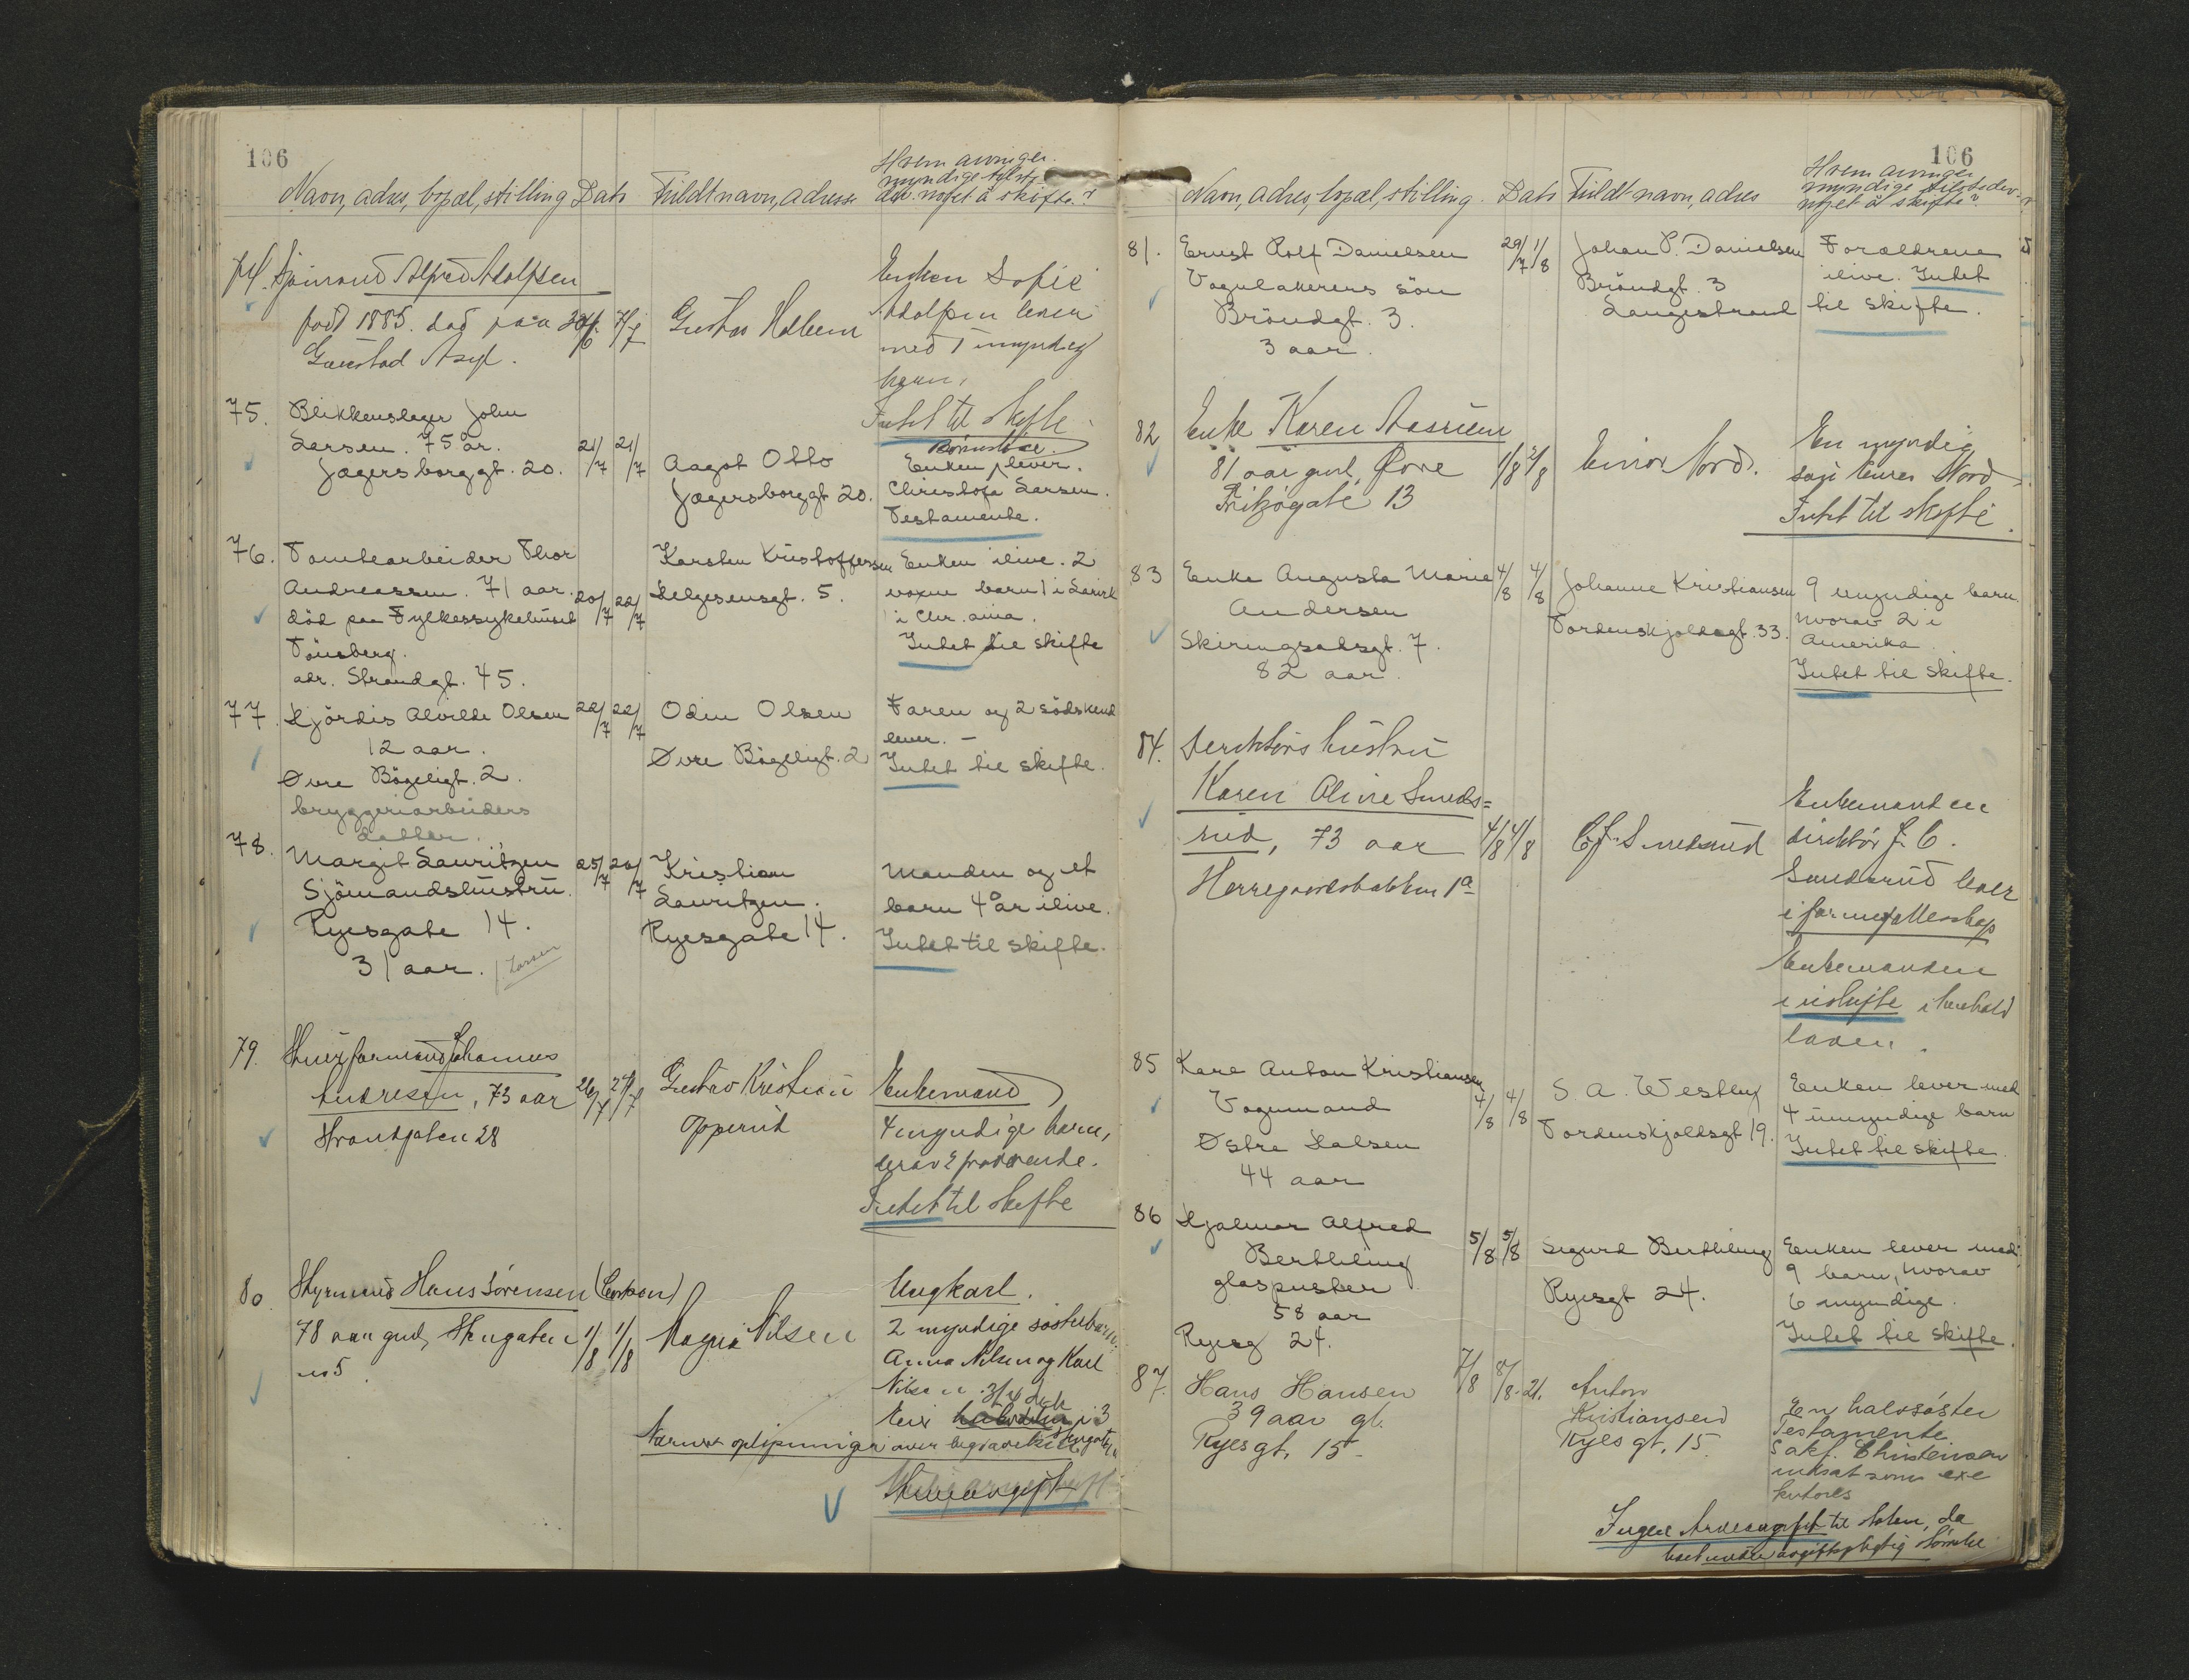 106
Navn, adres, bopæl, stilling Dato Fuldt navn, adresse
Hvem arvinger
myndige
det noget å skifte?
74. Sjömand Alfred Adolfsen
född 1885. död paa 30/6 7/7
Gaustad Asyl.
Gustav Holbein
Enken Sofie
Adolfsen lever
med 1 umyndig
barn.
Intet til skifte
75. Blikkenslager John
Larsen. 75 år. 21/7 21/7
Jægersborggt. 20.
Aagot Otto
Jægersborggt 20.
Enken lever.
Christofa Larsen.
Testamente.
76. Tomtearbeider Thor
Andreassen. 71 aar. 20/7 22/7
död paa Fylkessykehuset
Tönsberg.
adr. Strandgt. 45.
Karsten Kristoffersen
Helgesensgt. 5.
Enken ilive. 2
voxne barn 1 i Larvik
1 i Chr.ania.
Intet til skifte
77. Hjördis Alvilde Olsen 22/7 22/7
12 aar.
Övre Bögeligt. 2.
bryggeriarbeiders
datter.
Odin Olsen
Övre Bögeligt. 2
Faren og 2 södskend
lever. -
Intet til skifte.
78. Margit Lauritzen 25/7 26/7
Sjömandshustru.
Ryesgate 14.
31 aar. f. Larsen
Kristian
Lauritzen.
Ryesgate 14.
Manden og et
barn 4 år ilive.
Intet til skifte.
79. Johannes
Andresen, 73 aar 26/7 27/7
Strandgaten 28
Gustav Kristian
Opperud
Enkemand
4 myndige barn,
derav 2 fraværende.
Intet til skifte
80. Styrmand Hans Sörensen
78 aar gml, Stengaten 1/8 1/8
no 5.
Magna Nilsen
Ungkarl.
2 myndige söstebarn.
Anna Nilsen og Karl
Nilsen.
Nærmere oplysninger over
106
Navn, adres, bopæl, stilling. Dato Fuldt navn, adres
Hvem arvinger
myndige
noget å skifte?
81. Ernst Rolf Danielsen 29/7 1/8
Vognlakerers sön
Bröndgt. 3.
3 aar.
Johan P. Danielsen
Bröndgt. 3
Langestrand
Forældrene
ilive. Intet
til skifte.
82 Enke Karen Aasrum
81 aar gml, Övre 1/8 2/8
Fritzögate 13
Einar Nord.
En myndig
sön Einar Nord
Intet til skifte.
83 Enke Augusta Marie 4/8 4/8
Andersen
Skiringsalsgt. 7.
82 aar.
Johanne Kristiansen
Tordenskjoldsgt. 33.
9 umyndige barn.
hvorav 2 i
Amerika.
Intet til skifte.
84. Direktörs hustru
Karen Oline Smeds=
rud, 73 aar 4/8 4/8
Herregaardsbakken 1a
Smedsrud
Enkemanden
direktör J. C.
Smedsrud lever
i formuefællesskap
Enkemanden
i uskifte i henhold
loven.
85 Kare Anton Kristiansen
Vognmand 4/8 4/8
Östre Halsen
44 aar
S. A. Westby
Tordenskjoldsgt 19.
Enken lever med
4 umyndige barn
Intet til skifte.
86 Hjalmar Alfred
Berthling 5/8 5/8
glaspuster
58 aar
Ryesg 24.
Sigurd Berthling
Ryesgt 24.
Enken lever med
9 barn, hvorav
6 myndige.
Intet til skifte.
87. Hans Hansen 7/8 8/8-21.
39 aar gl.
Ryesgt. 15-
Anton
Kristiansen
Ryesgt. 15.
En halvsöster
Testamente
Sakf. Christensen
indsat som exe
kutores
Ingen Arveavgift til staten, da